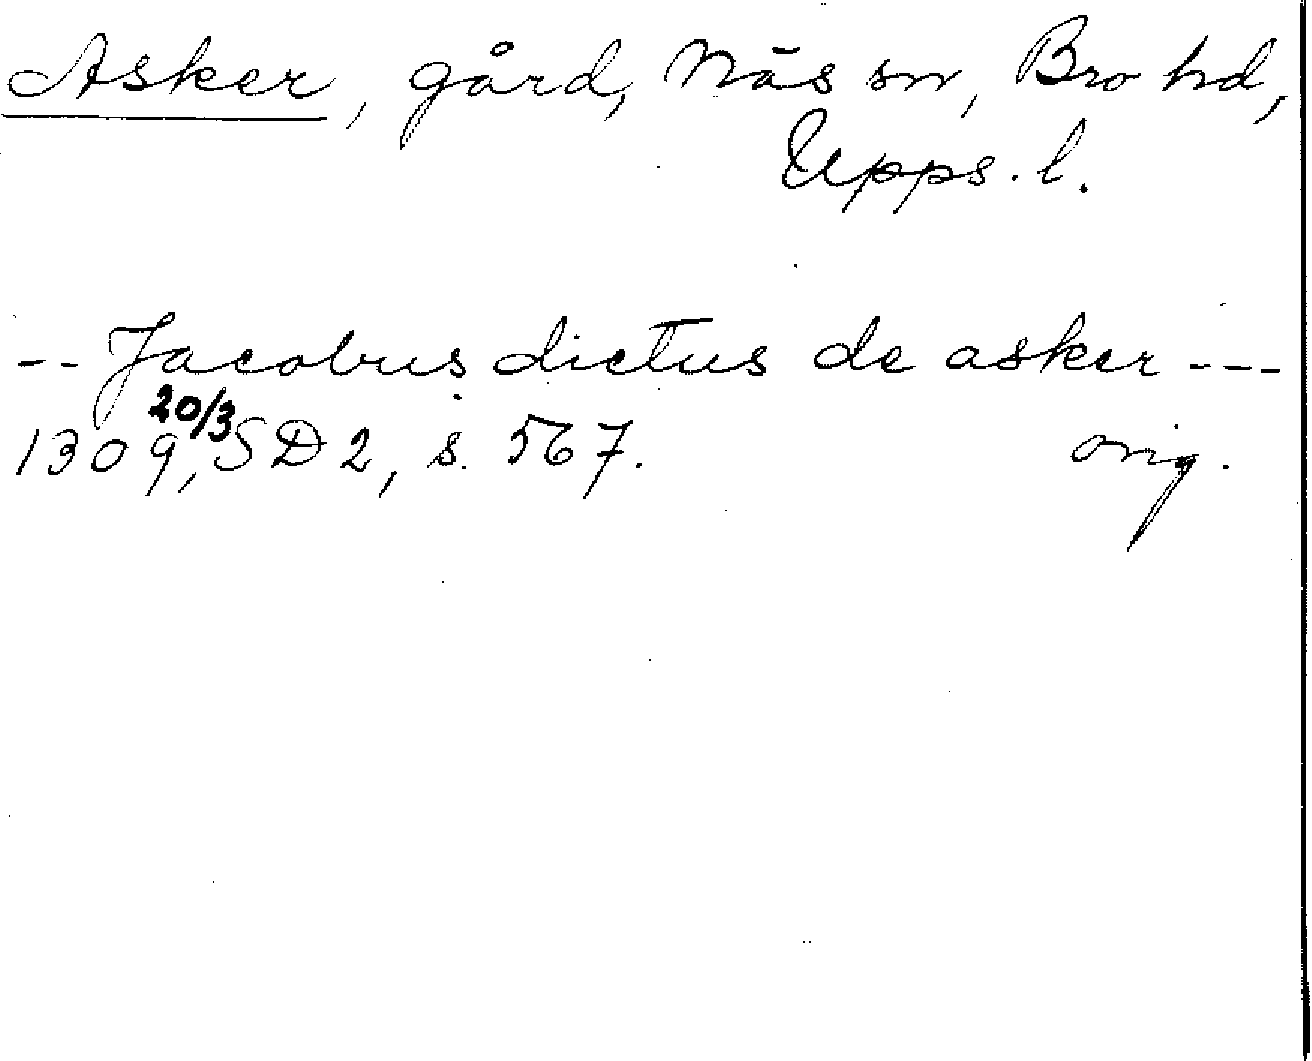 Asker, gård, Näs sn, Bro hd,
Upps. l.
-- Jacobus dictus de asker ---
1309 20/3, SD 2, s. 567. orig.